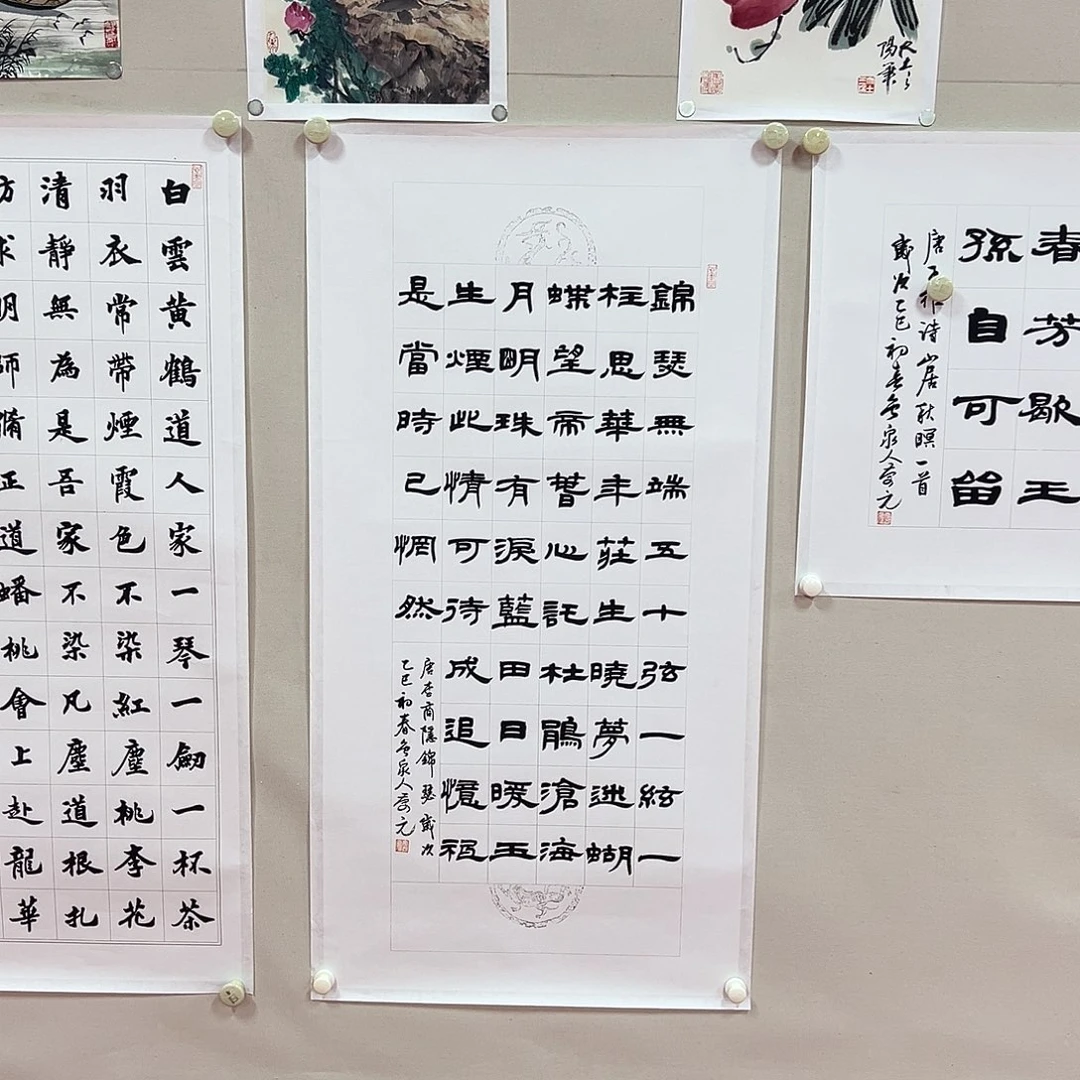 春芳歇王
孫自可留
唐王維詩山居秋暝一首
歲次乙巳初春泉人元
錦瑟無端五十弦一絃一
柱思華年莊生曉夢迷蝴
蝶望帝春心託杜鵑滄海
月明珠有淚藍田日暖玉
生煙此情可待成追憶祗
是當時已惘然
唐李商隱錦瑟歲次
乙巳初春泉人元
白雲黃鶴道人家一琴一劍一杯茶
羽衣常帶煙霞色不染紅塵桃李花
清靜無為是吾家不染凡塵道根扎
訪求明師脩正道蟠桃會上赴龍華